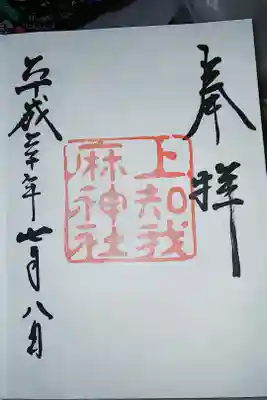 奉拝
上知我
麻神社
平成二十年七月八日